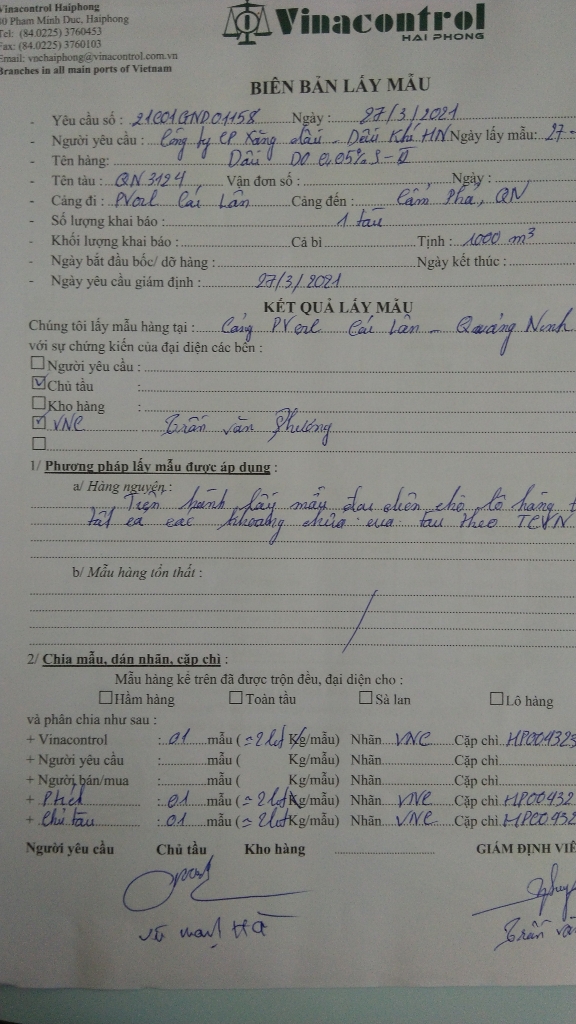 Vinacontrol Haiphong
80 Pham Minh Duc, Haiphong
Tel: (84.0225) 3760453
Fax: (84.0225) 3760103
Email: vnchaiphong@vinacontrol.com.vn
Branches in all main ports of Vietnam
Vinacontrol
HAI PHONG
BIÊN BẢN LẤY MẪU
- Yêu cầu số : 21C01GND01158 Ngày : 27/3/2021
- Người yêu cầu : Công ty CP Xăng dầu - Dầu Khí HN Ngày lấy mẫu: 27-
- Tên hàng: Dầu DO 0,05% S-II
- Tên tàu : QN 3124 Vận đơn số : Ngày :
- Cảng đi : PVoil Cái Lân Cảng đến : Cẩm Phả, QN
- Số lượng khai báo : 1 tàu
- Khối lượng khai báo : Cả bì Tịnh : 1000 m³
- Ngày bắt đầu bốc/ dỡ hàng : Ngày kết thúc :
- Ngày yêu cầu giám định : 27/3/2021
KẾT QUẢ LẤY MẪU
Chúng tôi lấy mẫu hàng tại : Cảng PVoil Cái Lân - Quảng Ninh
với sự chứng kiến của đại diện các bên :
Người yêu cầu :
Chủ tầu :
Kho hàng :
VNC Trần Văn Phương
1/ Phương pháp lấy mẫu được áp dụng :
a/ Hàng nguyên : Tiến hành lấy mẫu đại diện cho lô hàng
tất cả các khoang chứa của tàu theo TCVN
b/ Mẫu hàng tổn thất :
2/ Chia mẫu, dán nhãn, cặp chì :
Mẫu hàng kể trên đã được trộn đều, đại diện cho :
Hầm hàng Toàn tầu Sà lan Lô hàng
và phân chia như sau :
+ Vinacontrol : 01 mẫu (≈2 lít Kg/mẫu) Nhãn VNC Cặp chì HP004323
+ Người yêu cầu : mẫu ( Kg/mẫu) Nhãn Cặp chì
+ Người bán/mua : mẫu ( Kg/mẫu) Nhãn Cặp chì
+ Ptích : 01 mẫu (≈2 lít Kg/mẫu) Nhãn VNC Cặp chì HP00432
+ Chủ tàu : 01 mẫu (≈2 lít Kg/mẫu) Nhãn VNC Cặp chì HP00432
Người yêu cầu Chủ tầu Kho hàng GIÁM ĐỊNH VIÊ
Vũ Mạnh Hà Trần Vă